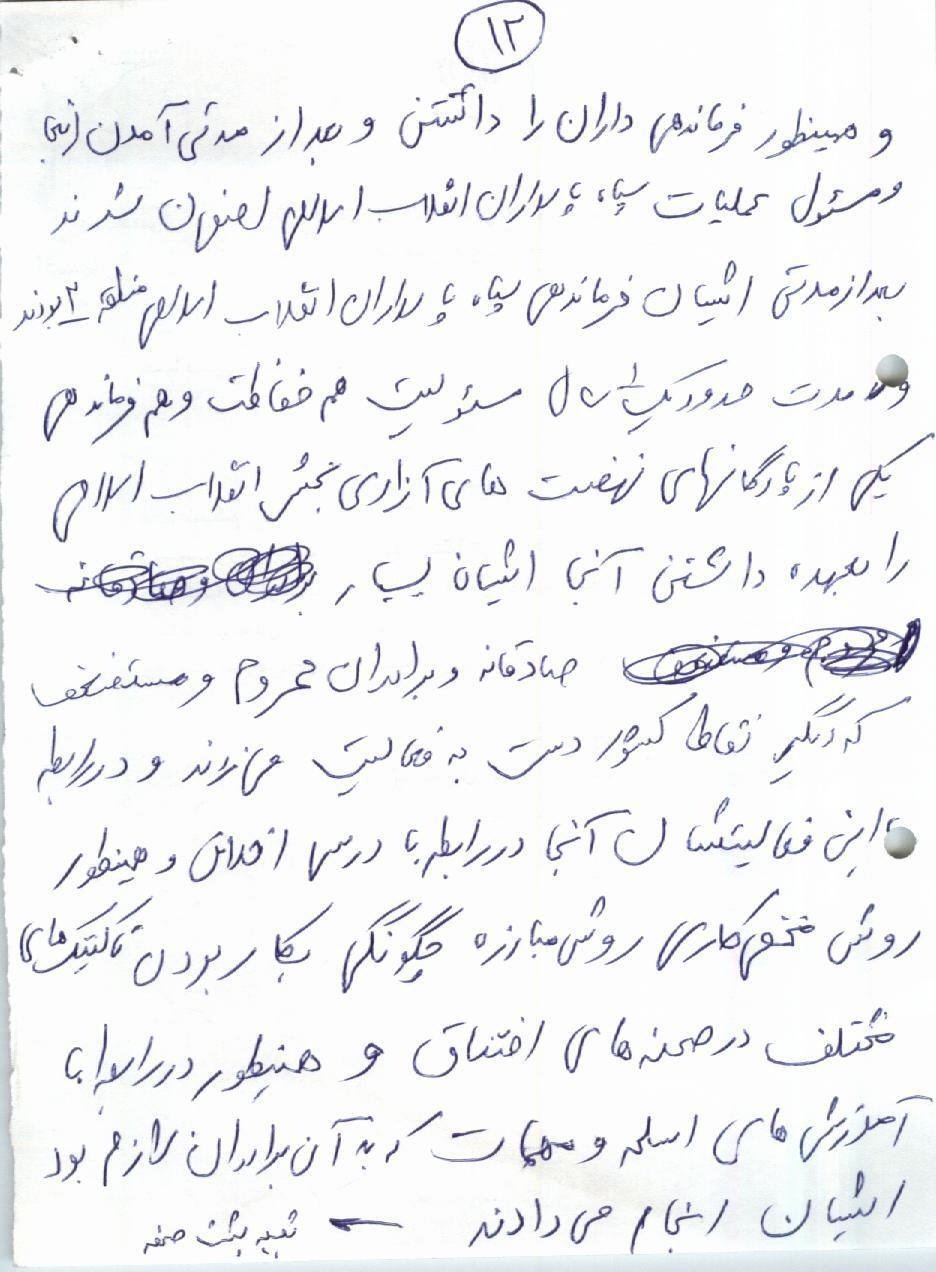 ۱۲
و همینطور فرماندهی داران را داشتن و بعد از مدتی آمدن اینجا
و مسئول عملیات سپاه پاسداران انقلاب اسلامی اصفهان شدند
بعد از مدتی ایشان فرماندهی سپاه پاسداران انقلاب اسلامی منطقه ۲ بودند
و مدت حدود یک سال مسئولیت هم حفاظت و هم فرماندهی
یکی از پادگانهای نهضت های آزادی بخش انقلاب اسلامی
را بعهده داشتن آنجا ایشان بسیار
صادقانه و برادران محروم و مستضعف
که دیگر نقاط کشور دست به فعالیت می زنند و در رابطه
با این فعالیتشان آنجا در رابطه با درس اخلاق و همینطور
روش مخفی کاری روش مبارزه چگونگی بکار بردن تاکتیک های
مختلف در صحنه های اختناق و همینطور در رابطه با
آموزش های اسلحه و مهمات که به آن برادران لازم بود
ایشان انجام می دادند ← بقیه پشت صفحه